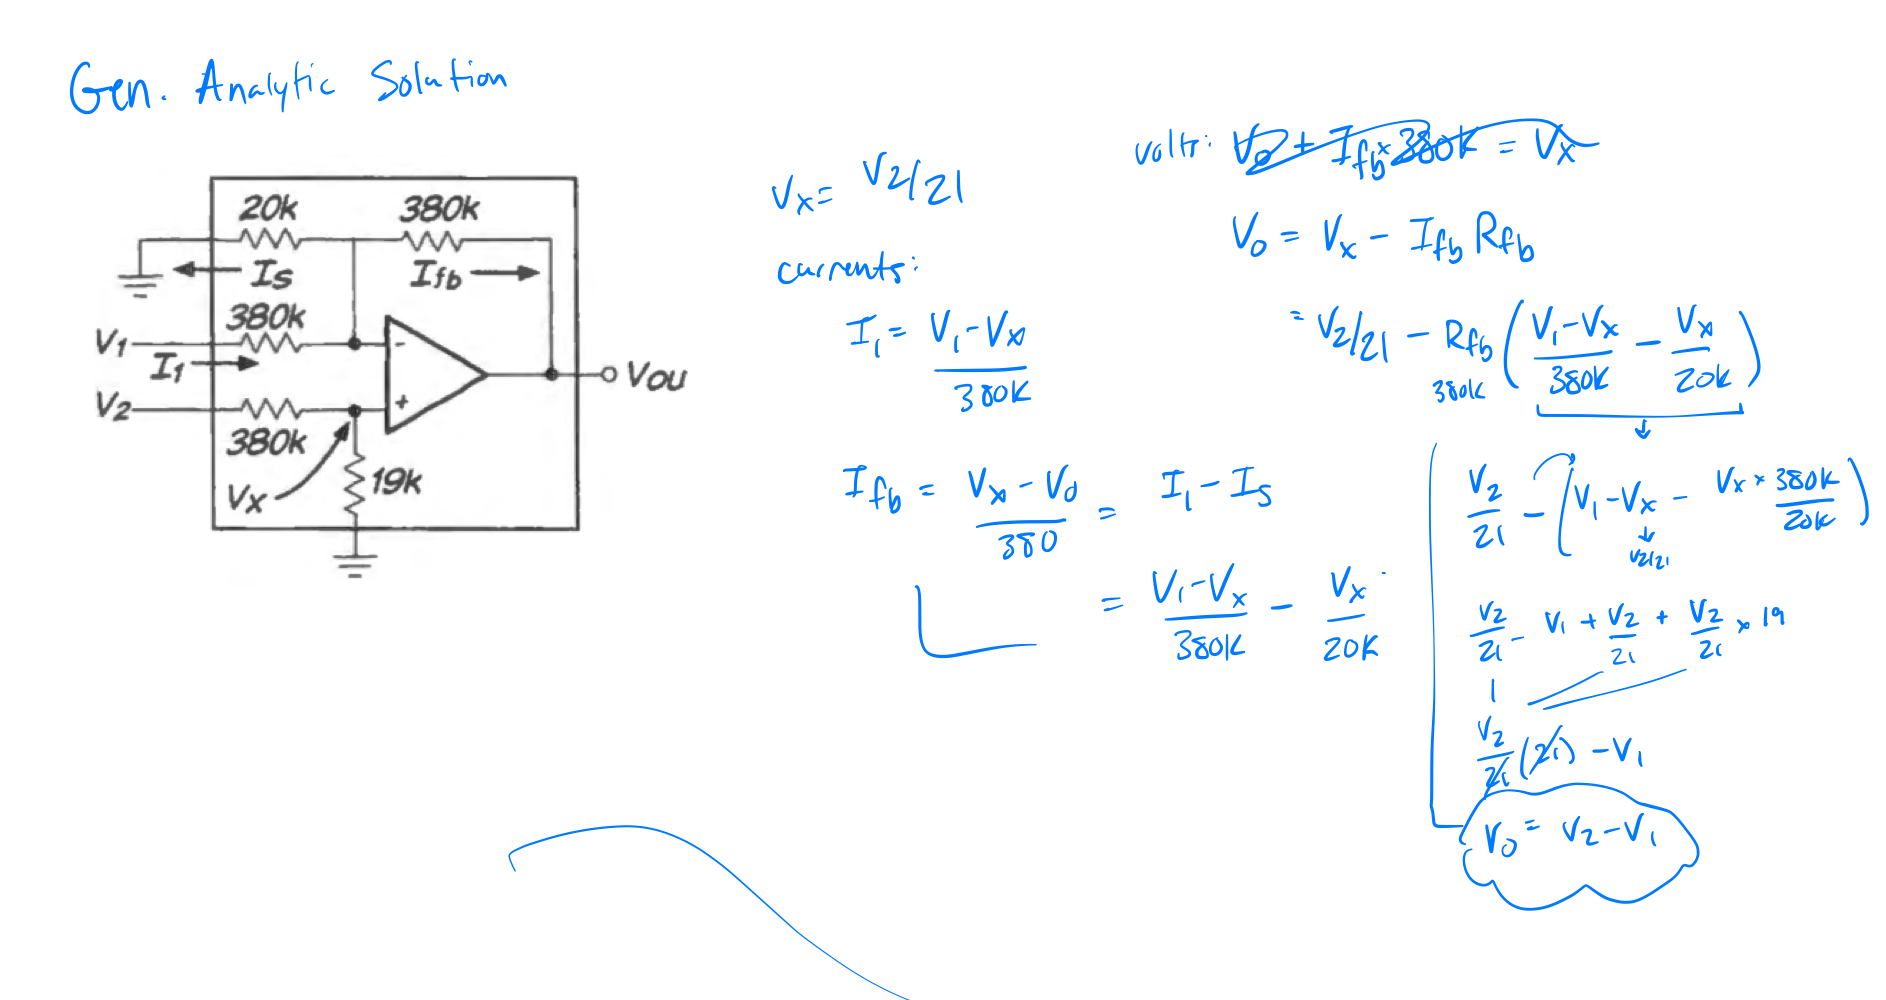 Gen. Analytic Solution
20k
380k
Is
Ifb
380k
V1
I1
V2
380k
Vx
19k
-
+
Vou
Vx = V2/21
currents:
I1 = (V1-Vx)/380K
Ifb = (Vx-Vo)/380 = I1 - Is
= (V1-Vx)/380K - Vx/20K
volts: Vo + Ifb × 380K = Vx
Vo = Vx - Ifb Rfb
= V2/21 - Rfb ((V1-Vx)/380K - Vx/20K)
380K
V2/21 - (V1 - Vx - Vx × 380K/20K)
V2/21
V2/21 - V1 + V2/21 + V2/21 × 19
V2/21 (21) - V1
Vo = V2 - V1